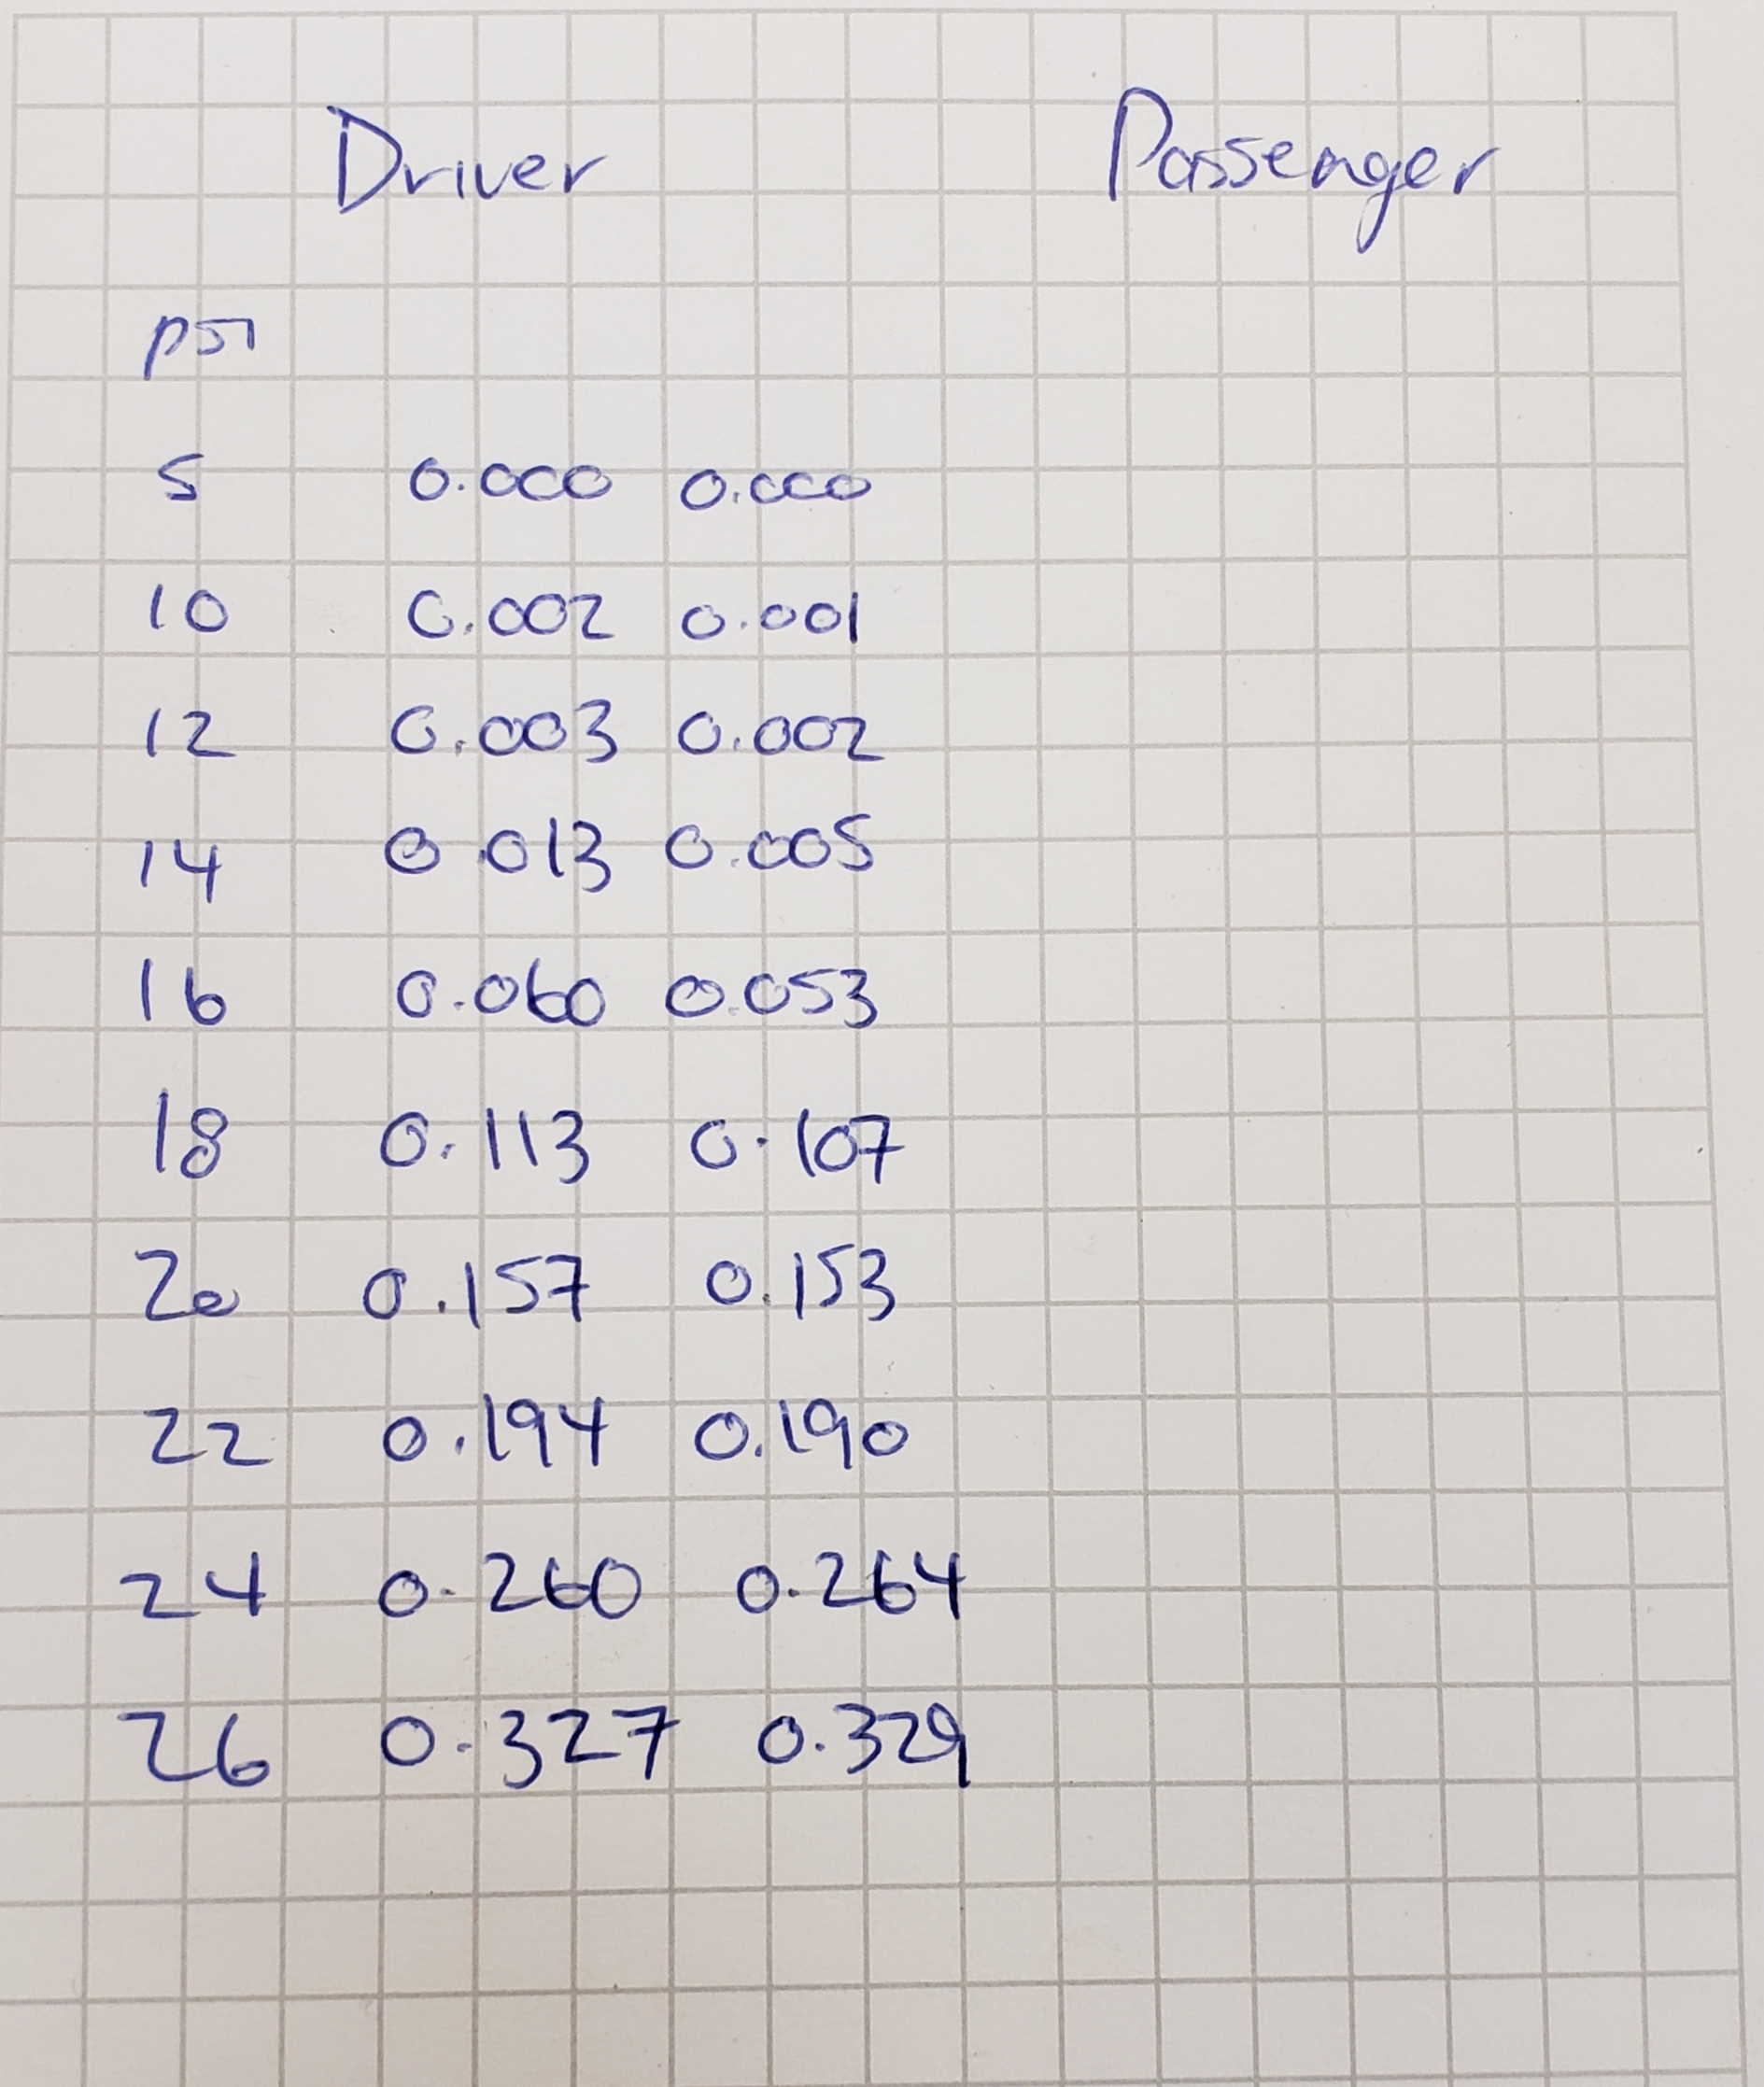 Driver Passenger
psi
5 0.000 0.000
10 0.002 0.001
12 0.003 0.002
14 0.013 0.005
16 0.060 0.053
18 0.113 0.107
20 0.157 0.153
22 0.194 0.190
24 0.260 0.264
26 0.327 0.329